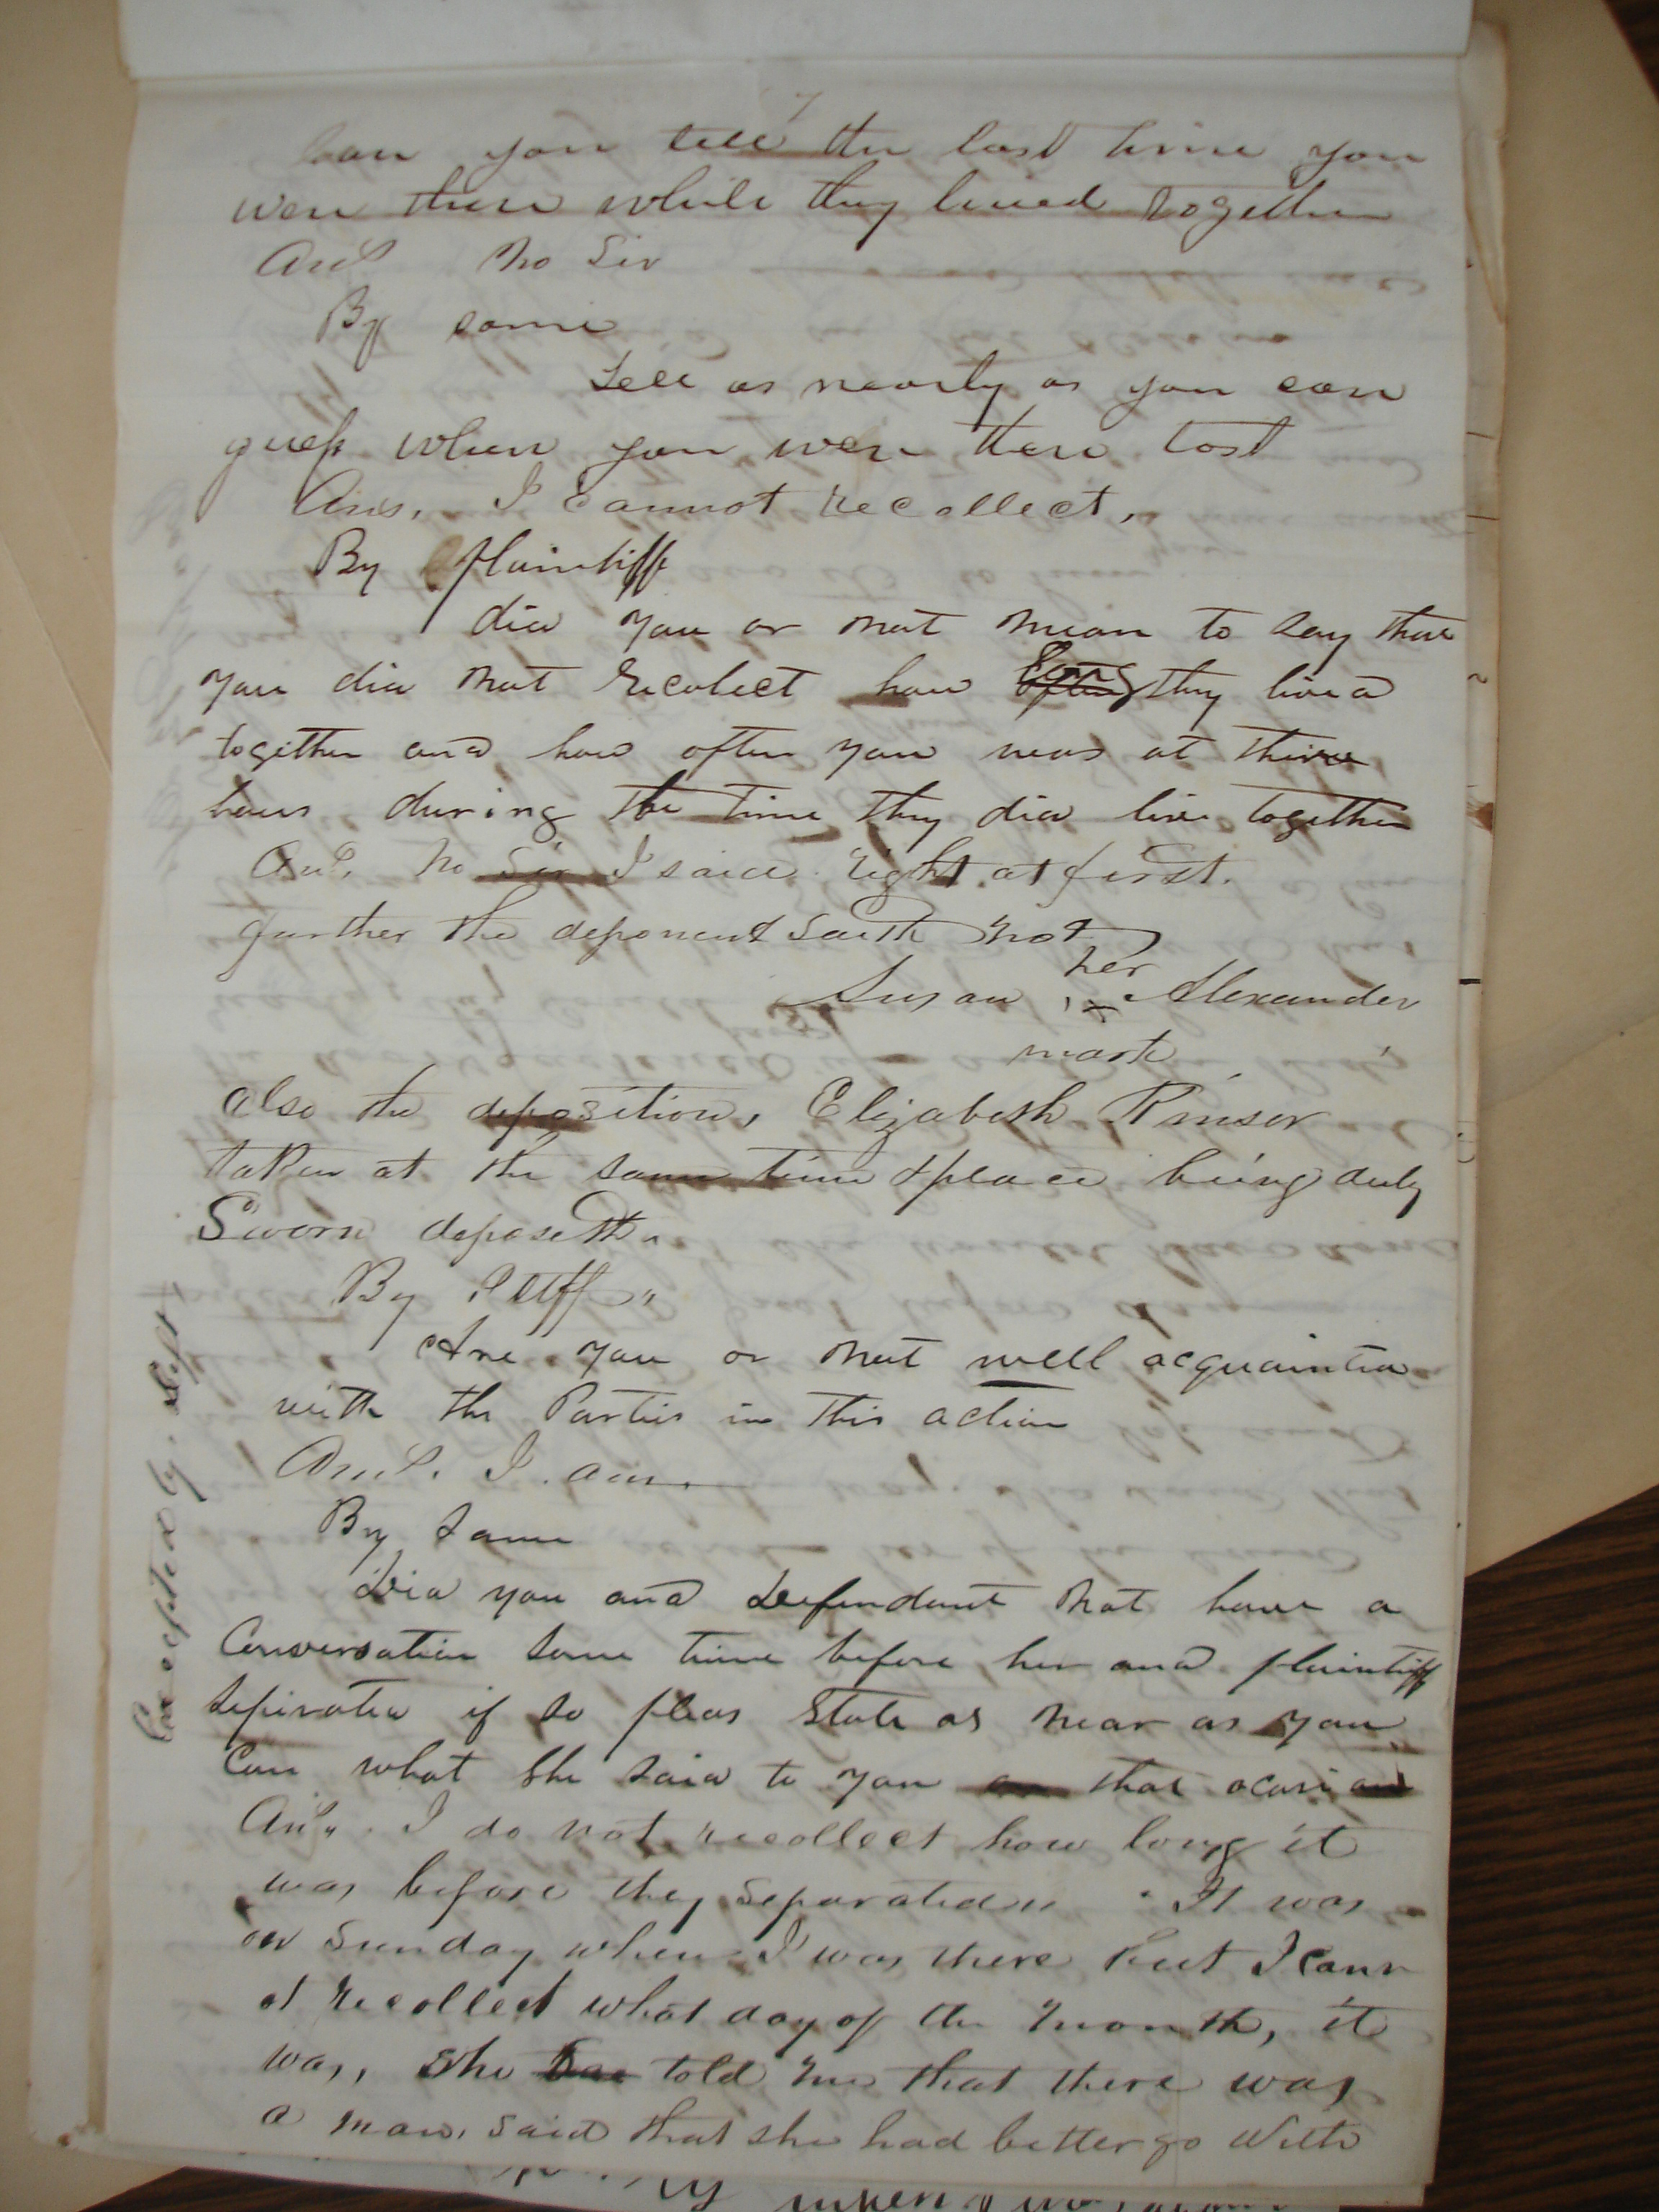 7
Can you tell the last time you
were there while they lived together
Ans no Sir
By same
Tell as nearly as you can
guess when you were there last
Ans, I cannot recollect,
By Plaintiff
did you or not mean to say that
you did not recolect how long they lived
together and how often you was at there
hous during the time they did live together
Ans. No Sir I said right at first.
further the deponent saith not
her
Susan x Alexander
mark
also the deposition, Elizabeth Rinser
taken at the same time & place being duly
Sworn deposeth
By Pltff
Are you or not well acquainted
with the Partis in this action
Ans. I am.
By Same
Did you and Defendant not have a
Conversation some time before her and plaintiff
seperated if so pleas state as near as you
Can what she said to you on that ocasion
Ans. I do not recollect how long it
was before they separated It was
on Sunday when I was there but I cann
ot recollect what day of the month, it
was, she told me that there was
a man, said that she had better go with
Excepted by Deft